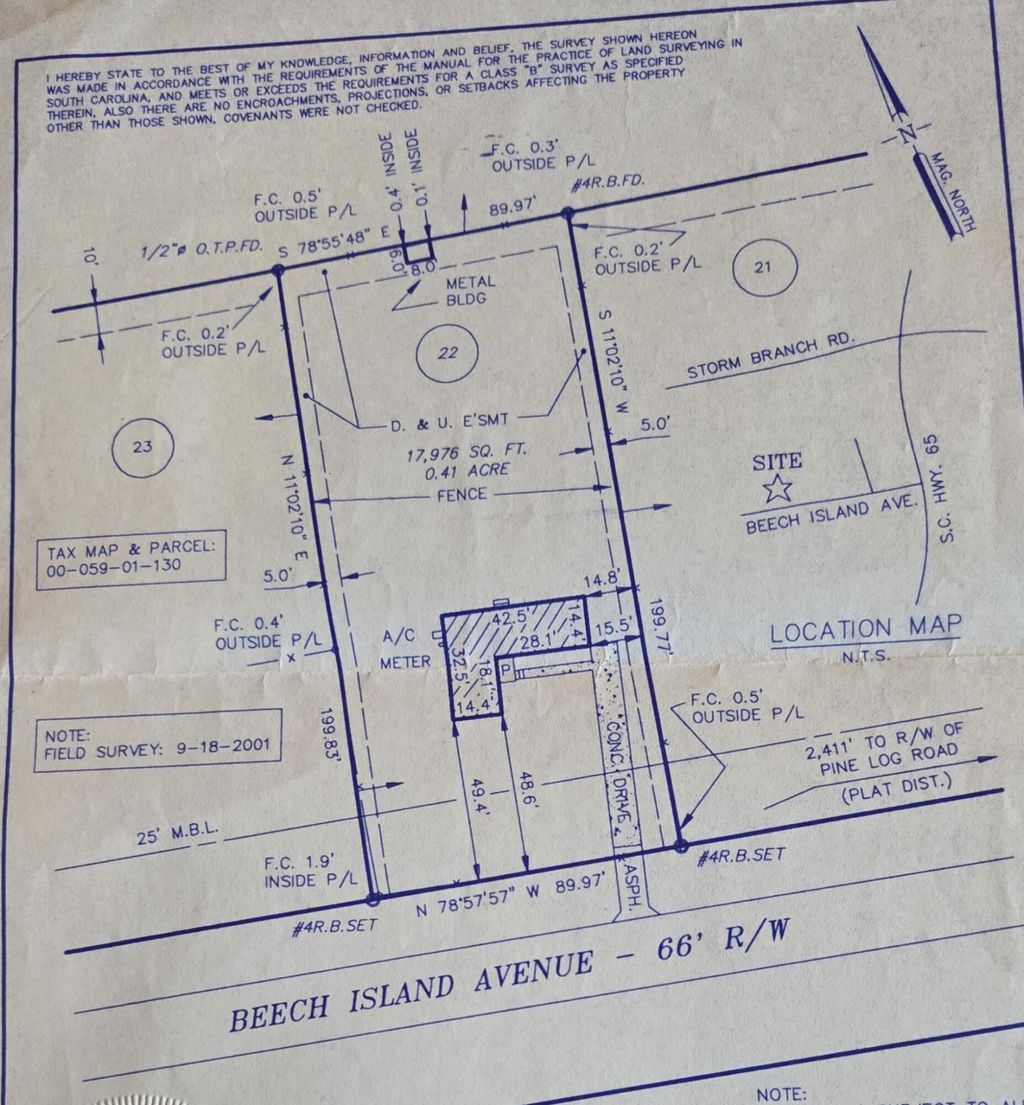 I HEREBY STATE TO THE BEST OF MY KNOWLEDGE, INFORMATION AND BELIEF, THE SURVEY SHOWN HEREON
WAS MADE IN ACCORDANCE WITH THE REQUIREMENTS OF THE MANUAL FOR THE PRACTICE OF LAND SURVEYING IN
SOUTH CAROLINA, AND MEETS OR EXCEEDS THE REQUIREMENTS FOR A CLASS "B" SURVEY AS SPECIFIED
THEREIN, ALSO THERE ARE NO ENCROACHMENTS, PROJECTIONS, OR SETBACKS AFFECTING THE PROPERTY
OTHER THAN THOSE SHOWN, COVENANTS WERE NOT CHECKED.
N
MAG. NORTH
F.C. 0.5'
OUTSIDE P/L
0.4' INSIDE
0.1' INSIDE
F.C. 0.3'
OUTSIDE P/L
#4R.B.FD.
10'
1/2"ø O.T.P.FD.
S 78°55'48" E
89.97'
6.0'
8.0'
METAL
BLDG
F.C. 0.2'
OUTSIDE P/L
21
F.C. 0.2'
OUTSIDE P/L
22
S 11°02'10" W
STORM BRANCH RD.
23
D. & U. E'SMT
5.0'
17,976 SQ. FT.
0.41 ACRE
FENCE
N 11°02'10" E
SITE
BEECH ISLAND AVE.
S.C. HWY. 65
TAX MAP & PARCEL:
00-059-01-130
5.0'
14.8'
F.C. 0.4'
OUTSIDE P/L
A/C
METER
42.5'
14.4'
28.1'
15.5'
32.5'
18.1'
P
14.4'
199.77'
LOCATION MAP
N.T.S.
NOTE:
FIELD SURVEY: 9-18-2001
199.83'
F.C. 0.5'
OUTSIDE P/L
2,411' TO R/W OF
PINE LOG ROAD
(PLAT DIST.)
CONC. DRIVE
49.4'
48.6'
25' M.B.L.
F.C. 1.9'
INSIDE P/L
#4R.B.SET
N 78°57'57" W 89.97'
ASPH.
#4R.B.SET
BEECH ISLAND AVENUE - 66' R/W
NOTE: